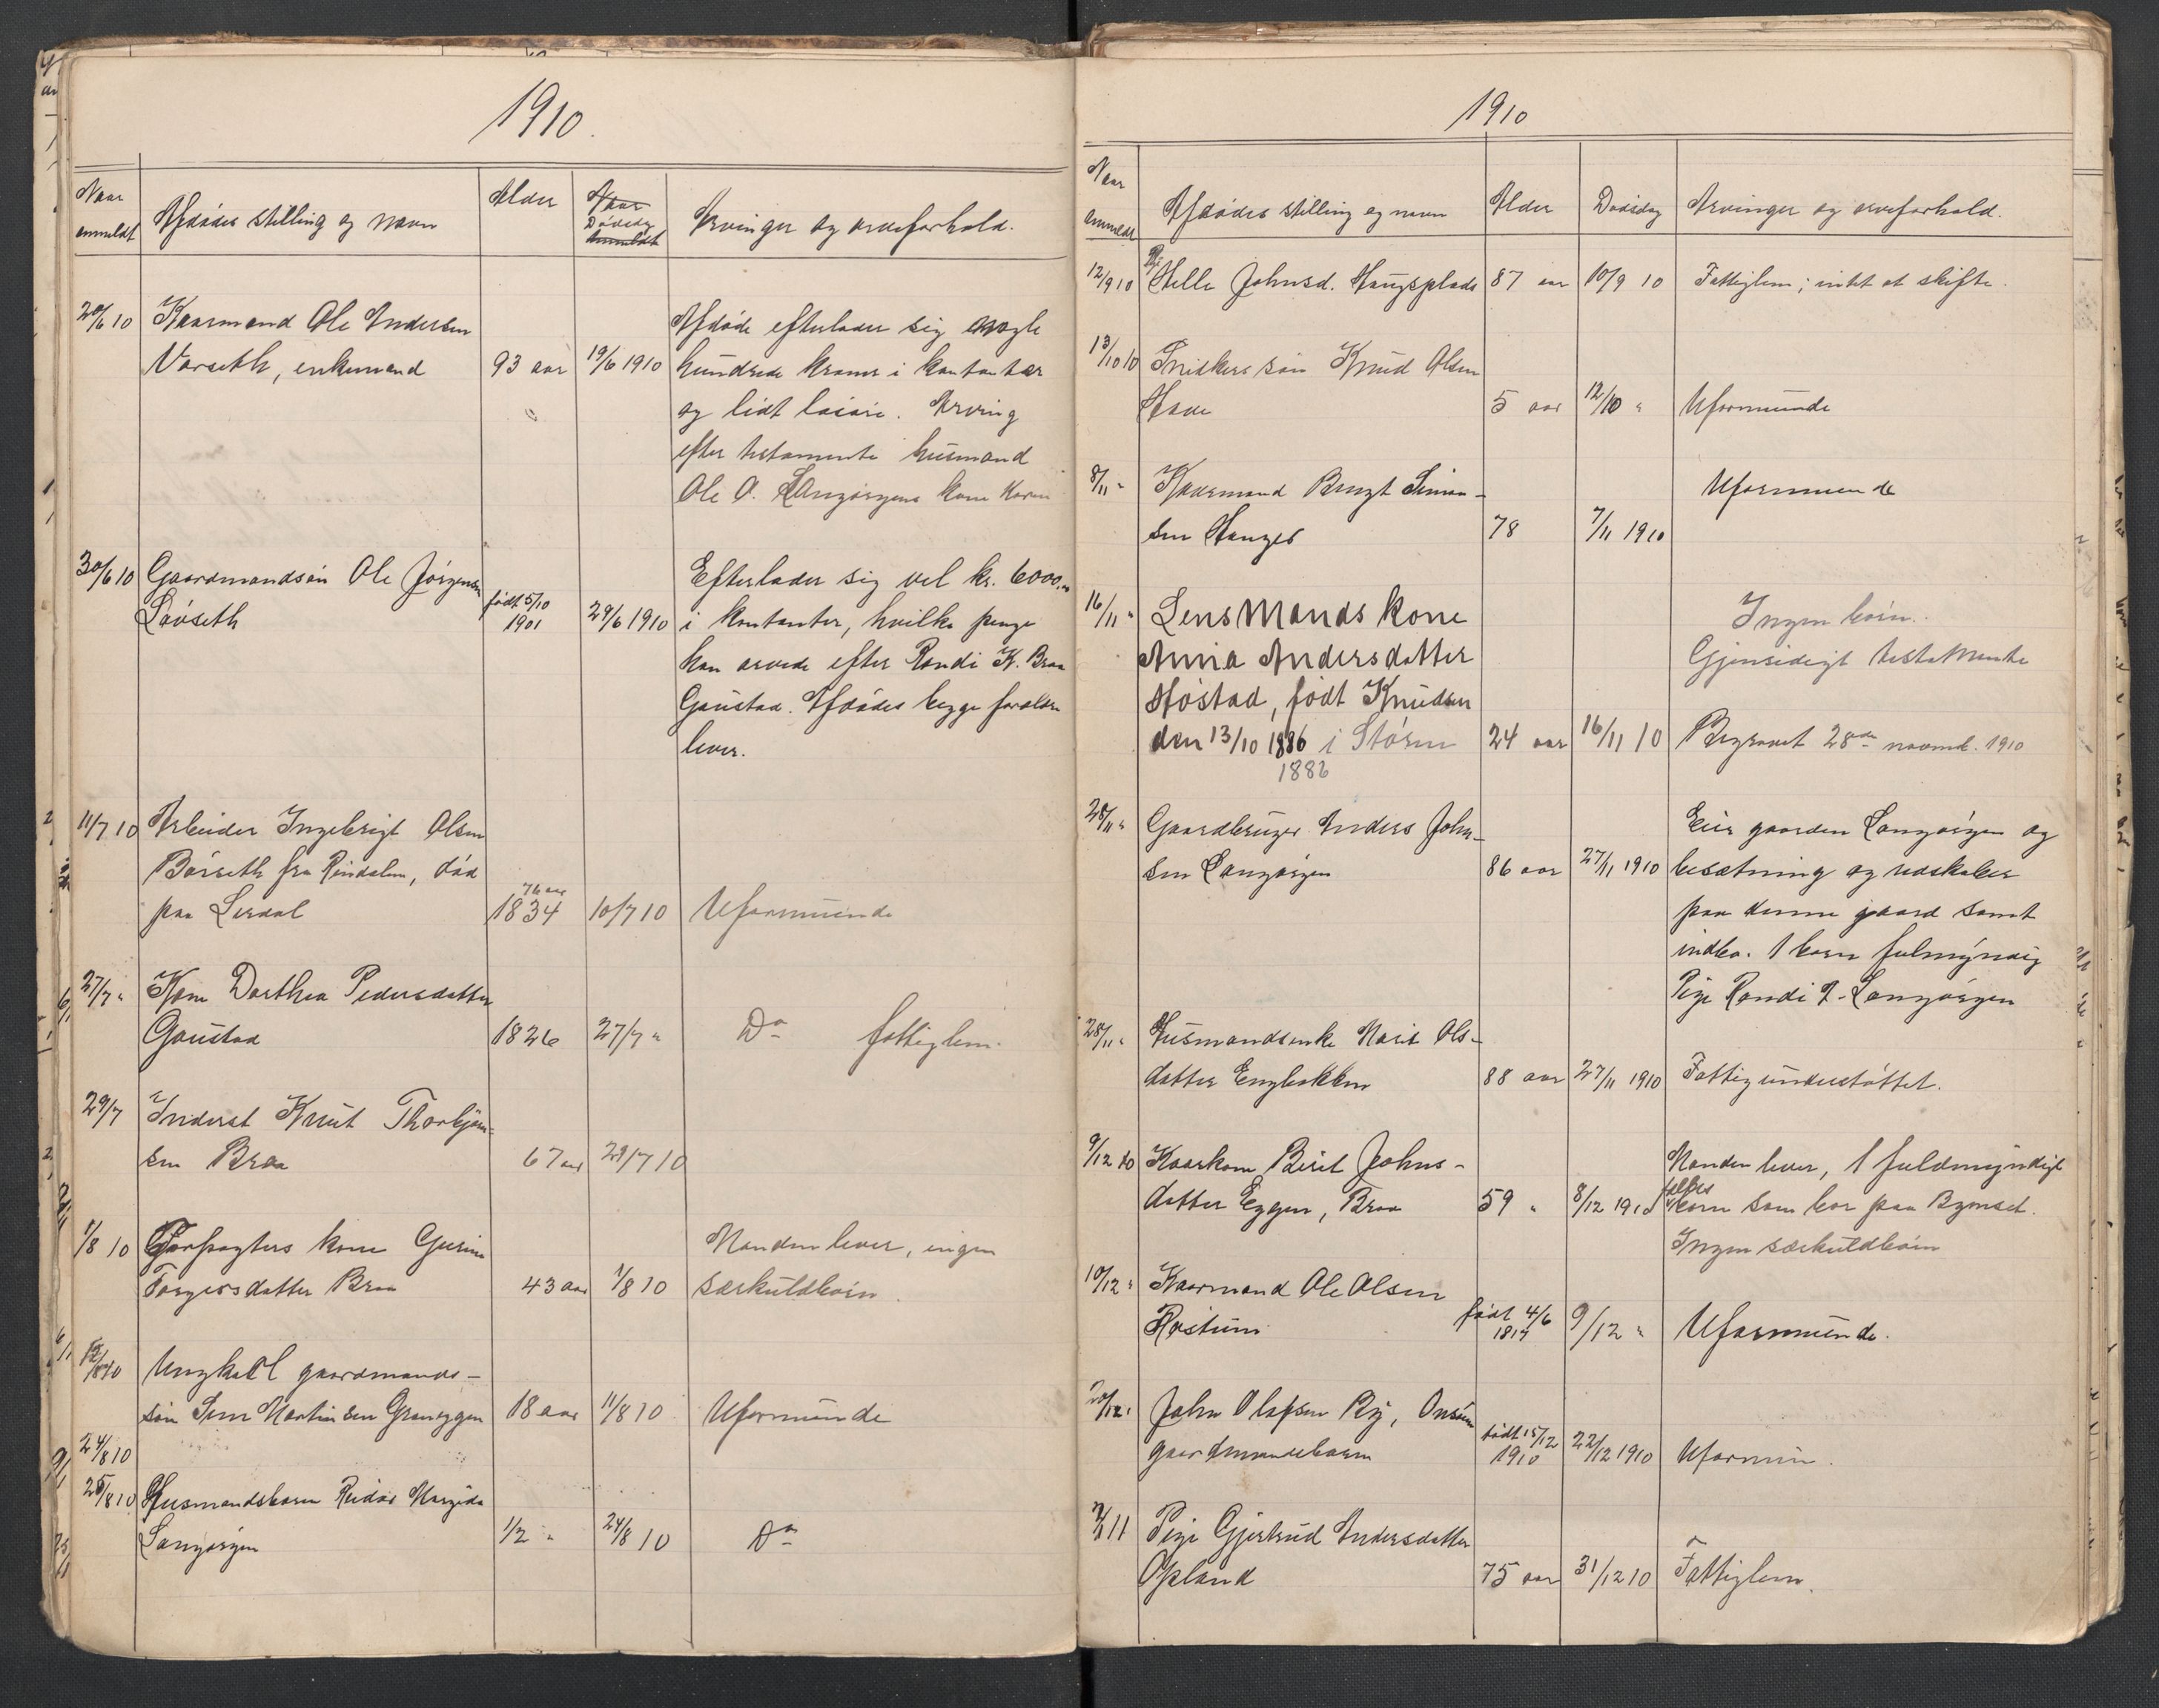 1910.
Naar anmeldt
Afdødes stilling og navn
Alder
Naar Dødsdag anmeldt
Arvinger og arveforhold.
20/6 10 Kaarmand Ole Andersen Afdøde efterlader sig nogle
Vorseth, enkemand 93 aar 19/6 1910 hundrede kroner i kontanter
og lidt løsøre. Arving
efter testamente husmand
Ole O. Langørgens kone Karen
30/6 10 Gaardmandsøn Ole Jørgensen Efterlader sig vel kr. 6000,00
Løvseth født 5/10 1901 29/6 1910 i kontanter, hvilke penge
han arvede efter Randi K. Braa
Gaustad. Afdødes begge forældre
lever.
11/7 10 Arbeider Ingebrigt Olsen
Børseth fra Rindalen, død
paa Lerdal 76 aar 1834 10/7 10 Uformuende
27/7 " Kone Dorthea Pedersdatter
Gaustad 1826 27/7 " Do fattiglem.
29/7 Inderst Knut Thorbjørn-
sen Braa 67 aar 29/7 10
1/8 10 Forpagters kone Gurine Manden lever, ingen
Torgersdatter Braa 43 aar 1/8 10 særkuldbørn.
12/8 10 Ungkarl gaardmands-
søn Martinsen Graneggen 18 aar 11/8 10 Uformuende
24/8 10
25/8 10 Husmandsbarn Reidar
Langørgen 1/2 " 24/8 10 Do
1910
Naar anmeldt
Afdødes stilling og navn
Alder
Dødsdag
Arvinger og arveforhold.
12/9 10 Pige Helle Johnsd. Haugsplads 87 aar 10/9 10 Fattiglem; intet at skifte.
13/10 10 Snidkers søn Knud Olsen
5 aar 12/10 " Uformuende
8/11 " Kaarmand Bengt Simon- Uformuende
sen Hanger 78 7/11 1910
16/11 " Lensmands kone Ingen børn.
Anna Andersdatter Gjensidigt testamente
Høstad, født Knudsen
den 13/10 1886 i Støren 24 aar 16/11 10 Begravet 28de novemb. 1910
1886
28/11 " Gaardbruger Anders John- Eier gaarden Langørgen og
sen Langørgen 86 aar 27/11 1910 besætning og redskaber
paa denne gaard samt
indbo. 1 barn fulmyndig
Pige Randi A. Langørgen
28/11 " Husmandsenke Marit Ols-
datter Engbakken 88 aar 27/11 1910 Fattigunderstøttet.
9/12 10 Kaarkone Berit Johns- Manden lever, 1 fuldmyndigt
datter Eggen, Braa 59 " 8/12 1910 fælles barn som bor paa Bynset.
Ingen særkuldbørn
10/12 " Kaarmand Ole Olsen
Rostum født 4/6 1817 9/12 " Uformuende.
John Olafsen Ry, Onsøien
gaardmandsbarn født 15/12 1910 22/12 1910 Uformu.
2/1 11 Pige Gjertrud Andersdatter
Opland 75 aar 31/12 10 Fattiglem.